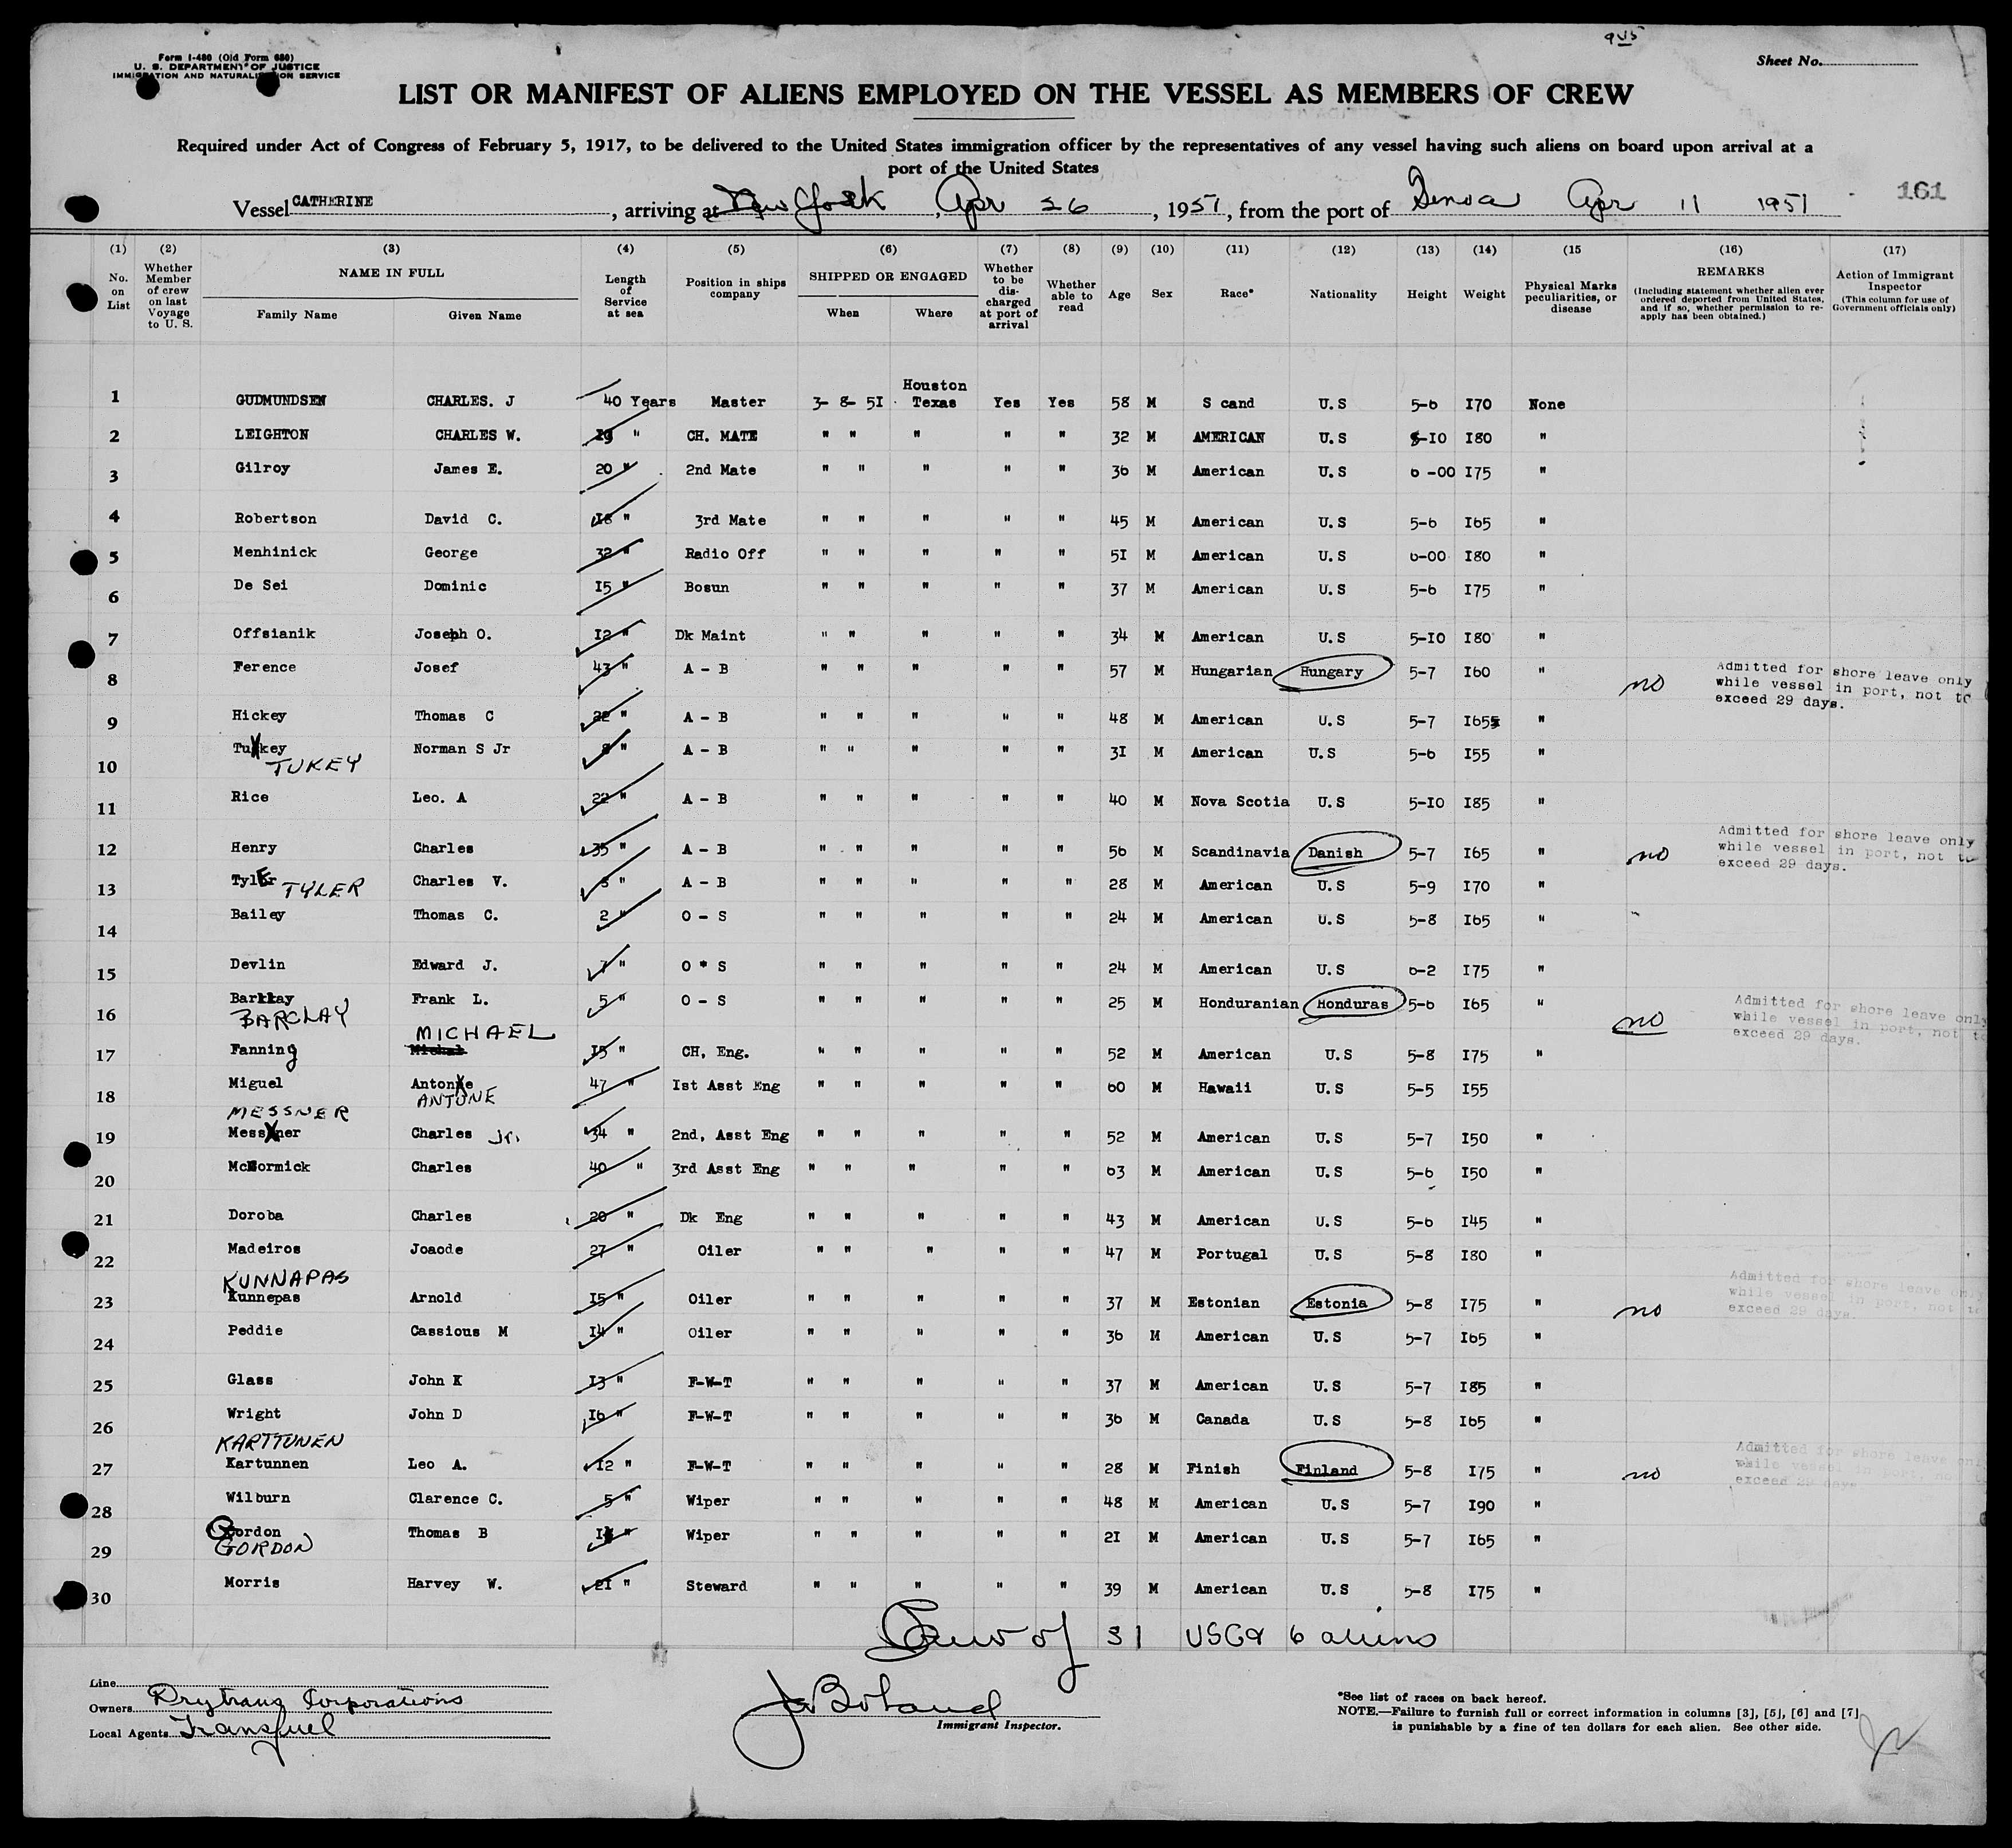 9 45
Form I-480 (Old Form 680)
U. S. DEPARTMENT OF JUSTICE
IMMIGRATION AND NATURALIZATION SERVICE
Sheet No.
LIST OR MANIFEST OF ALIENS EMPLOYED ON THE VESSEL AS MEMBERS OF CREW
Required under Act of Congress of February 5, 1917, to be delivered to the United States immigration officer by the representatives of any vessel having such aliens on board upon arrival at a
port of the United States
Vessel CATHERINE, arriving at New York, Apr 26, 1951, from the port of Genoa Apr 11 1951 161
(1) (2) (3) (4) (5) (6) (7) (8) (9) (10) (11) (12) (13) (14) (15 (16) (17)
No. on List Whether Member of crew on last Voyage to U. S. NAME IN FULL Family Name Given Name Length of Service at sea Position in ships company SHIPPED OR ENGAGED When Where Whether to be discharged at port of arrival Whether able to read Age Sex Race* Nationality Height Weight Physical Marks peculiarities, or disease REMARKS (Including statement whether alien ever ordered deported from United States, and if so, whether permission to re-apply has been obtained.) Action of Immigrant Inspector (This column for use of Government officials only)
1 GUDMUNDSEN CHARLES. J 40 Years Master 3- 8- 51 Houston Texas Yes Yes 58 M S cand U.S 5-6 170 None
2 LEIGHTON CHARLES W. " CH. MATE " " " " " 32 M AMERICAN U.S 5-10 180 "
3 Gilroy James E. 20 " 2nd Mate " " " " " 36 M American U.S 6 -00 175 "
4 Robertson David C. 18 " 3rd Mate " " " " " 45 M American U.S 5-6 165 "
5 Menhinick George 32 " Radio Off " " " " " 51 M American U.S 6-00 180 "
6 De Sei Dominic 15 " Bosun " " " " " 37 M American U.S 5-6 175 "
7 Offsianik Joseph O. 12 " Dk Maint " " " " " 34 M American U.S 5-10 180 "
8 Ference Josef 43 " A - B " " " " " 57 M Hungarian Hungary 5-7 160 " no Admitted for shore leave only while vessel in port, not to exceed 29 days.
9 Hickey Thomas C 22 " A - B " " " " " 48 M American U.S 5-7 165 "
10 Tuckey TUKEY Norman S Jr 8 " A - B " " " " " 31 M American U.S 5-6 155 "
11 Rice Leo. A 22 " A - B " " " " " 40 M Nova Scotia U.S 5-10 185 "
12 Henry Charles 35 " A - B " " " " " 56 M Scandinavia Danish 5-7 165 " no Admitted for shore leave only while vessel in port, not to exceed 29 days.
13 Tyler TYLER Charles V. 5 " A - B " " " " " 28 M American U.S 5-9 170 "
14 Bailey Thomas C. 2 " O - S " " " " " 24 M American U.S 5-8 165 "
15 Devlin Edward J. 7 " O * S " " " " " 24 M American U.S 6-2 175 "
16 Barklay BARCLAY Frank L. 5 " O - S " " " " " 25 M Honduranian Honduras 5-6 165 " no Admitted for shore leave only while vessel in port, not to exceed 29 days.
17 Fanning MICHAEL Michal 15 " CH, Eng. " " " " " 52 M American U.S 5-8 175 "
18 Miguel ANTONE 47 " 1st Asst Eng " " " " " 60 M Hawaii U.S 5-5 155
19 MESSNER Charles Jr. 34 " 2nd, Asst Eng " " " " " 52 M American U.S 5-7 150 "
20 McCormick Charles 40 " 3rd Asst Eng " " " " " 63 M American U.S 5-6 150 "
21 Doroba Charles 20 " Dk Eng " " " " " 43 M American U.S 5-6 145 "
22 Madeiros Joaode 27 " Oiler " " " " " 47 M Portugal U.S 5-8 180 "
23 KUNNAPAS Kunnepas Arnold 15 " Oiler " " " " " 37 M Estonian Estonia 5-8 175 " no Admitted for shore leave only while vessel in port, not to exceed 29 days.
24 Peddie Cassious M 14 " Oiler " " " " " 36 M American U.S 5-7 165 "
25 Glass John K 13 " F-W-T " " " " " 37 M American U.S 5-7 185 "
26 Wright John D 16 " F-W-T " " " " " 36 M Canada U.S 5-8 165 "
27 KARTTUNEN Kartunnen Leo A. 12 " F-W-T " " " " " 28 M Finish Finland 5-8 175 " no Admitted for shore leave only while vessel in port, not to exceed 29 days
28 Wilburn Clarence C. 5 " Wiper " " " " " 48 M American U.S 5-7 190 "
29 Gordon GORDON Thomas B " Wiper " " " " " 21 M American U.S 5-7 165 "
30 Morris Harvey W. 21 " Steward " " " " " 39 M American U.S 5-8 175 "
Crew of 31 USC & 6 aliens
Line
Owners Drytrans Corporations
Local Agents Transfuel
Immigrant Inspector.
*See list of races on back hereof.
NOTE.—Failure to furnish full or correct information in columns [3], [5], [6] and [7]
is punishable by a fine of ten dollars for each alien. See other side.